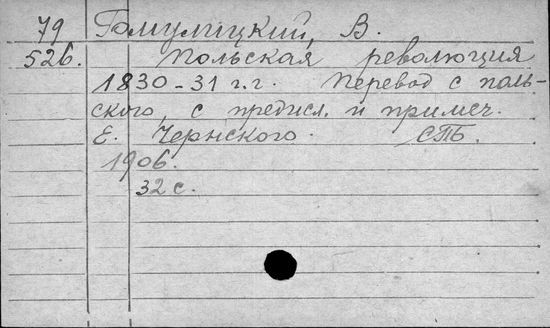 79 Гомулицкий, В.
526. Польская революция
1830-31 г.г. Перевод с поль-
ского, с предисл. и примеч.
Е. Чернского. СПб.
1906.
32 с.